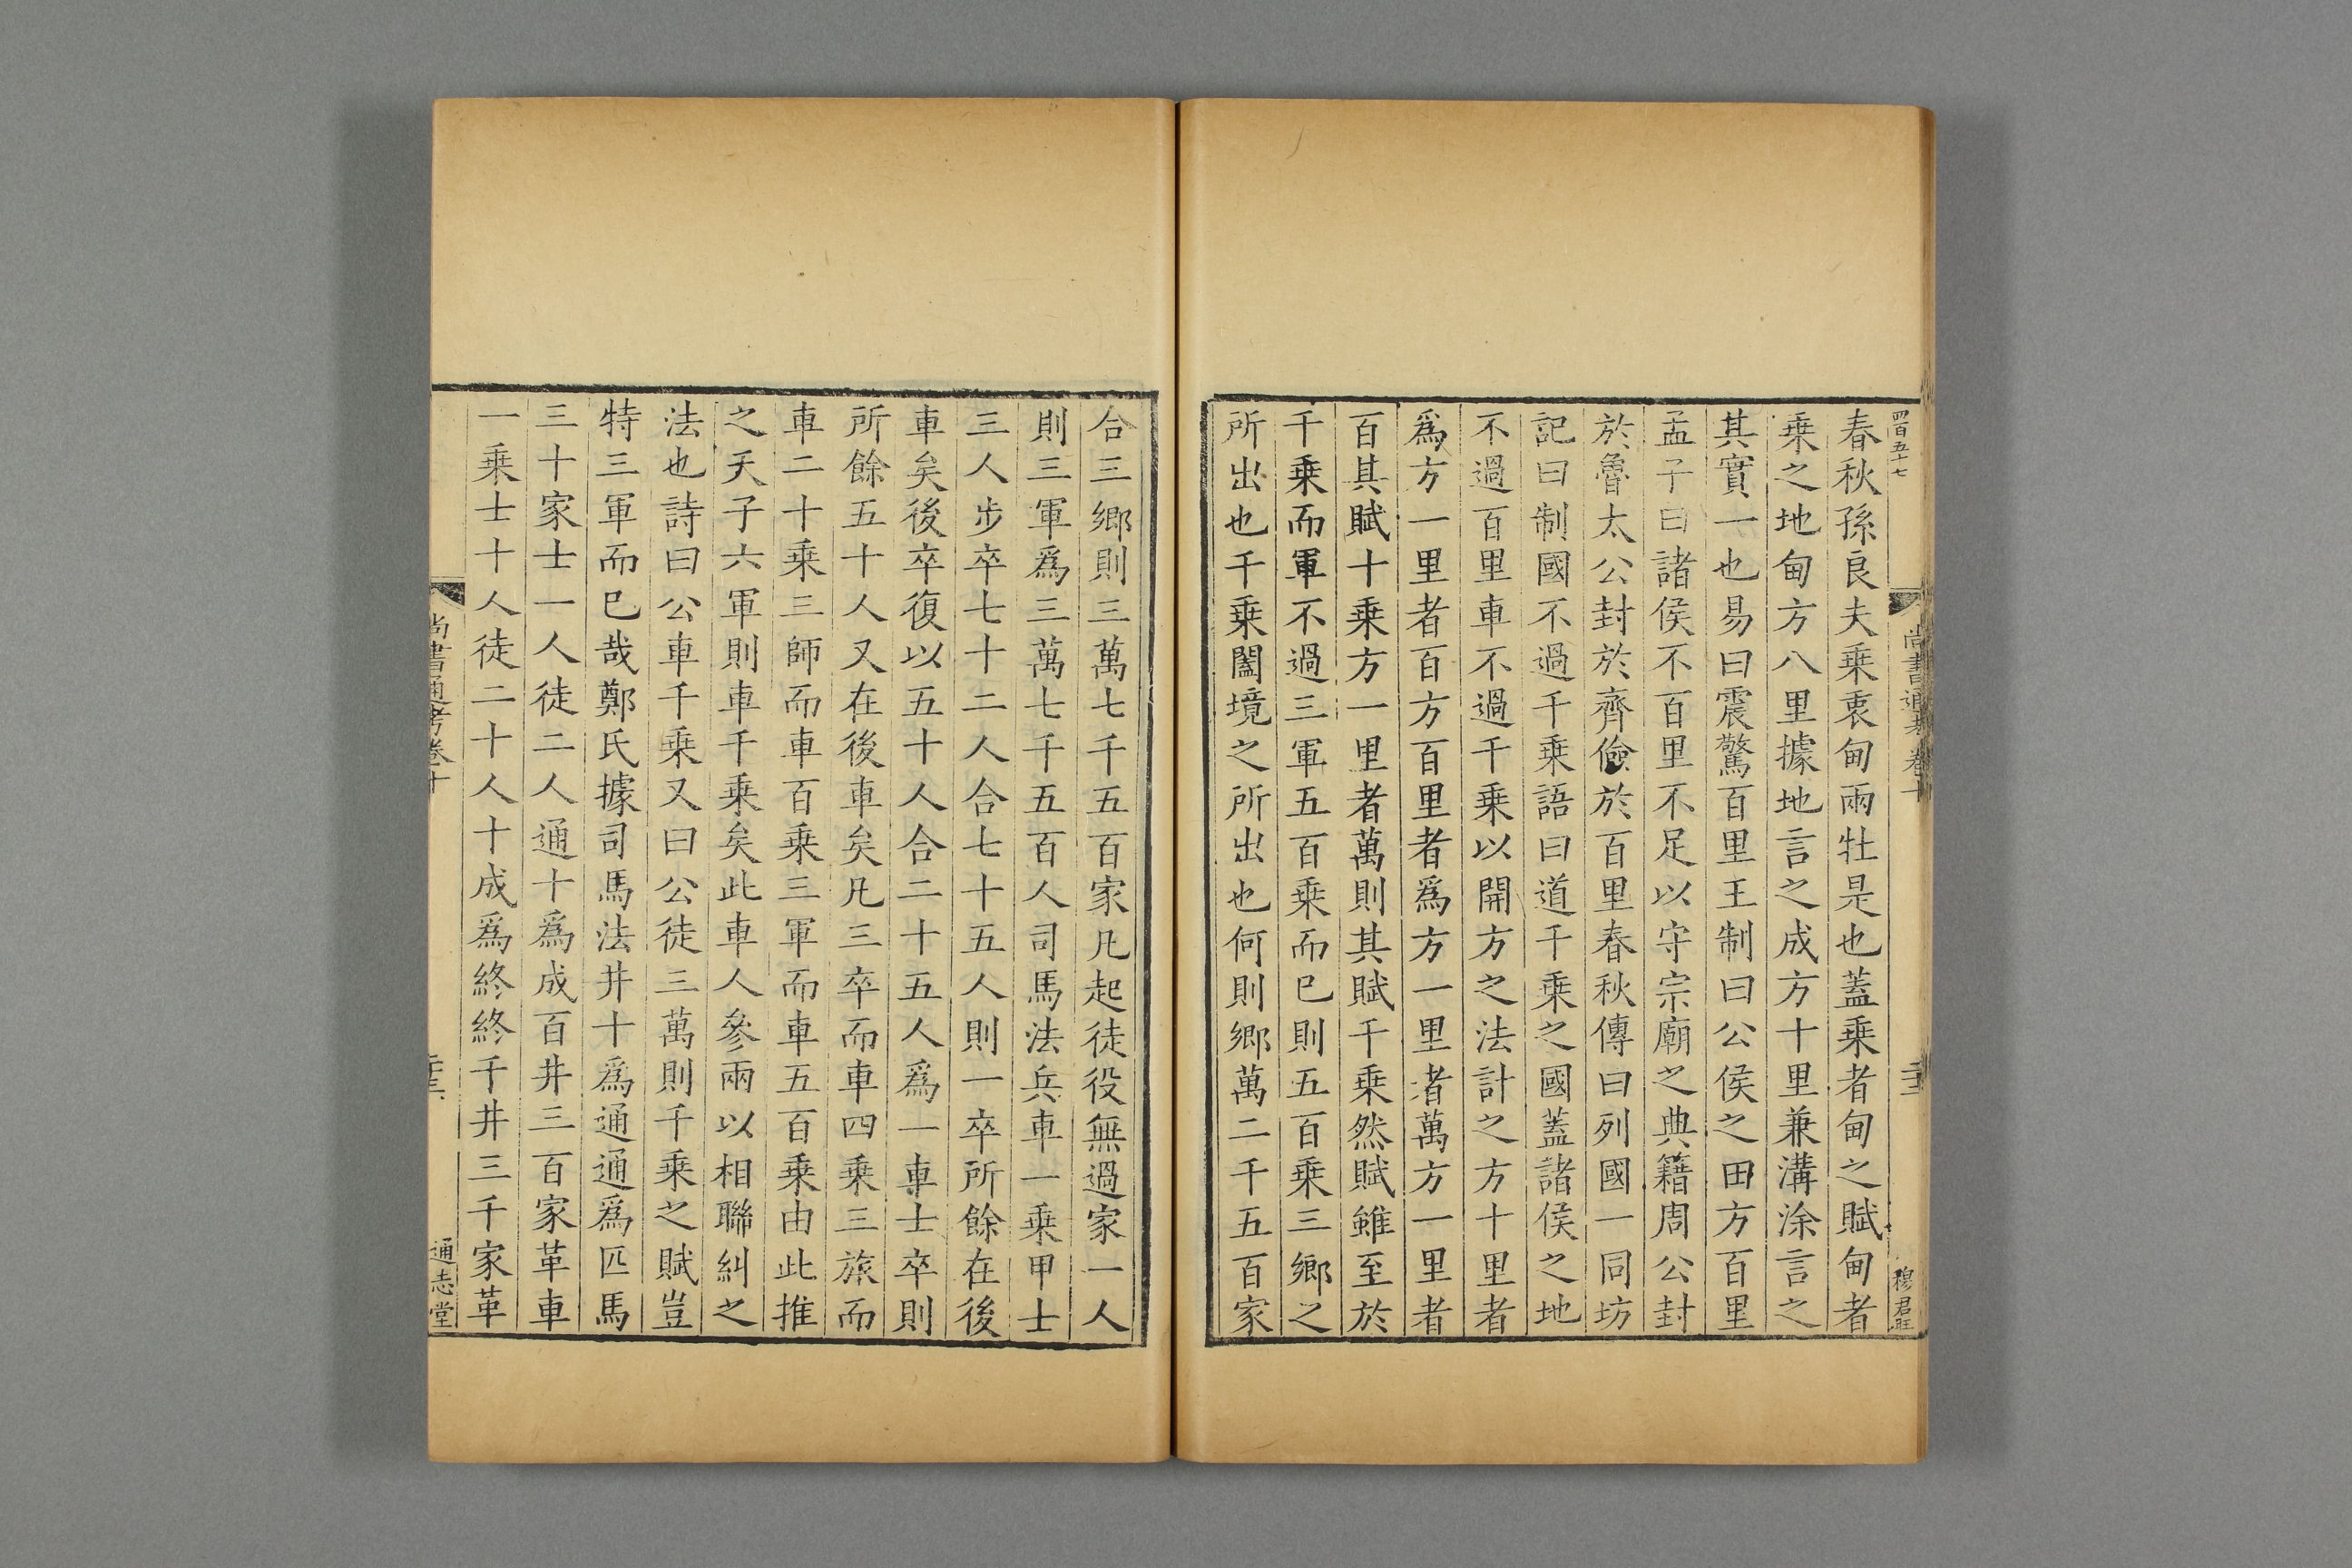 四百五十七
尚書通考卷十
二十二
穆君旺
春秋孫良夫乗衷甸兩牡是也蓋乗者甸之賦甸者
乗之地甸方八里據地言之成方十里兼溝涂言之
其實一也易曰震驚百里王制曰公侯之田方百里
孟子曰諸侯不百里不足以守宗廟之典籍周公封
於魯太公封於齊儉於百里春秋傳曰列國一同坊
記曰制國不過千乗語曰道千乗之國蓋諸侯之地
不過百里車不過千乗以開方之法計之方十里者
爲方一里者百方百里者爲方一里者萬方一里者
百其賦十乗方一里者萬則其賦千乗然賦雖至於
千乗而軍不過三軍五百乗而已則五百乗三鄉之
所出也千乗闔境之所出也何則鄉萬二千五百家
合三鄉則三萬七千五百家凡起徒役無過家一人
則三軍爲三萬七千五百人司馬法兵車一乗甲士
三人步卒七十二人合七十五人則一卒所餘在後
車矣後卒復以五十人合二十五人爲一車士卒則
所餘五十人又在後車矣凡三卒而車四乗三旅而
車二十乗三師而車百乗三軍而車五百乗由此推
之天子六軍則車千乗矣此車人參兩以相聯糾之
法也詩曰公車千乗又曰公徒三萬則千乗之賦豈
特三軍而已哉鄭氏據司馬法井十爲通通爲匹馬
三十家士一人徒二人通十爲成百井三百家革車
一乗士十人徒二十人十成爲終終千井三千家革
尚書通考卷十
通志堂